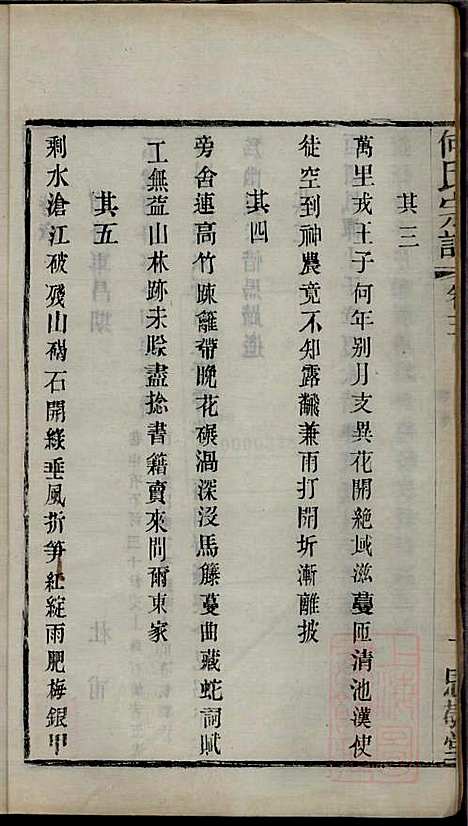 何氏宗譜
卷三
其三
萬里戎王子何年别月支異花開絶域滋蔓匝清池漢使
徒空到神農竟不知露飜兼雨打開圻漸離披
其四
旁舍連高竹踈籬帶晚花碾渦深没馬籐蔓曲藏蛇詞賦
工無益山林跡未賖盡捻書籍賣來問爾東家
其五
剩水滄江破殘山碣石開緑垂風折笋紅綻雨肥梅銀甲